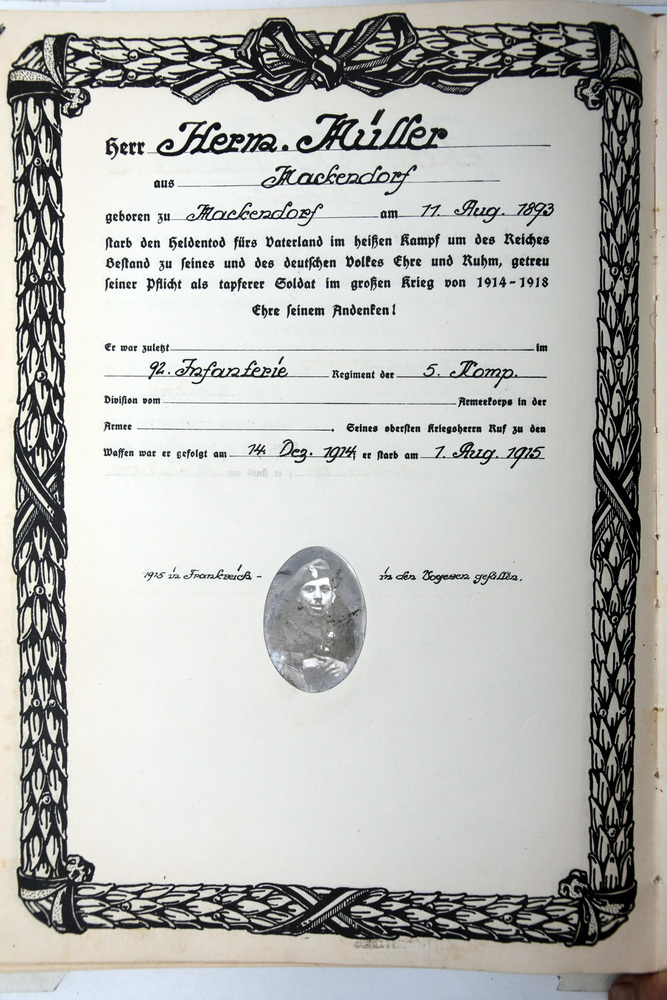 Herr Herm. Müller
aus Mackendorf
geboren zu Mackendorf am 11. Aug. 1893
starb den Heldentod fürs Vaterland im heißen Kampf um des Reiches
Bestand zu seines und des deutschen Volkes Ehre und Ruhm, getreu
seiner Pflicht als tapferer Soldat im großen Krieg von 1914-1918
Ehre seinem Andenken!
Er war zuletzt im
92. Infanterie Regiment der 5. Komp.
Division vom Armeekorps in der
Armee . Seines obersten Kriegsherrn Ruf zu den
Waffen war er gefolgt am 14. Dez. 1914, er starb am 1. Aug. 1915
1915 in Frankreich - in den Vogesen gefallen.